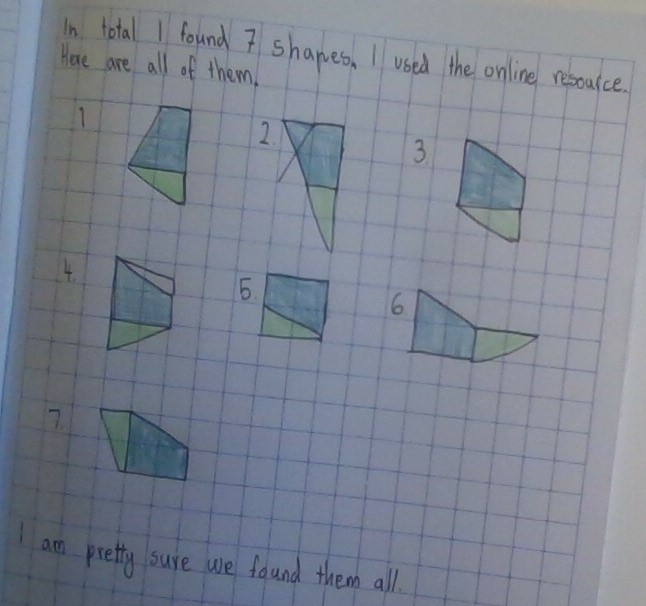 In total I found 7 shapes. I used the online resource.
Here are all of them.
1 2. 3.
4. 5. 6.
7.
I am pretty sure we found them all.